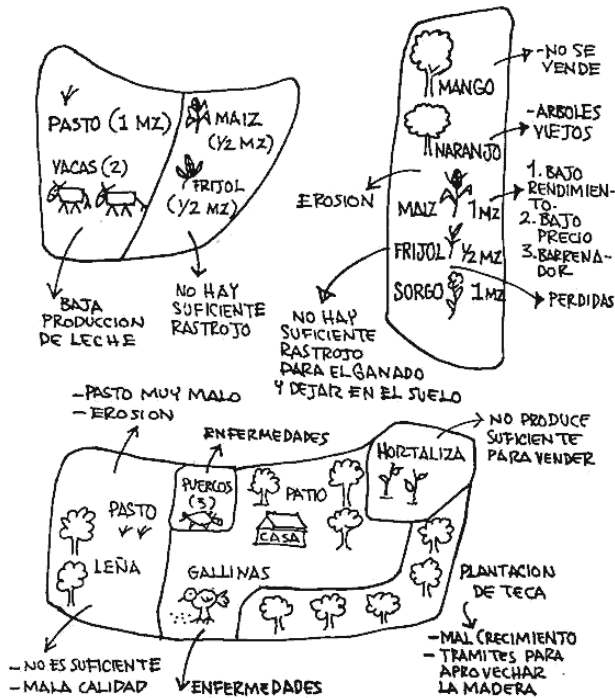 PASTO (1 MZ)
VACAS (2)
MAIZ
(½ MZ)
FRIJOL
(½ MZ)
BAJA
PRODUCCION
DE LECHE
NO HAY
SUFICIENTE
RASTROJO
MANGO
-NO SE
VENDE
NARANJO
-ARBOLES
VIEJOS
EROSION
MAIZ 1 MZ
1. BAJO
RENDIMIEN-
TO.
2. BAJO
PRECIO
3. BARRENA-
DOR
FRIJOL ½ MZ
SORGO 1 MZ
PERDIDAS
NO HAY
SUFICIENTE
RASTROJO
PARA EL GANADO
Y DEJAR EN EL SUELO
-PASTO MUY MALO
-EROSION
ENFERMEDADES
PUERCOS
(3)
PATIO
CASA
HORTALIZA
NO PRODUCE
SUFICIENTE
PARA VENDER
PASTO
LEÑA
GALLINAS
PLANTACION
DE TECA
-MAL CRECIMIENTO
-TRAMITES PARA
APROVECHAR
LA MADERA
-NO ES SUFICIENTE
-MALA CALIDAD
ENFERMEDADES